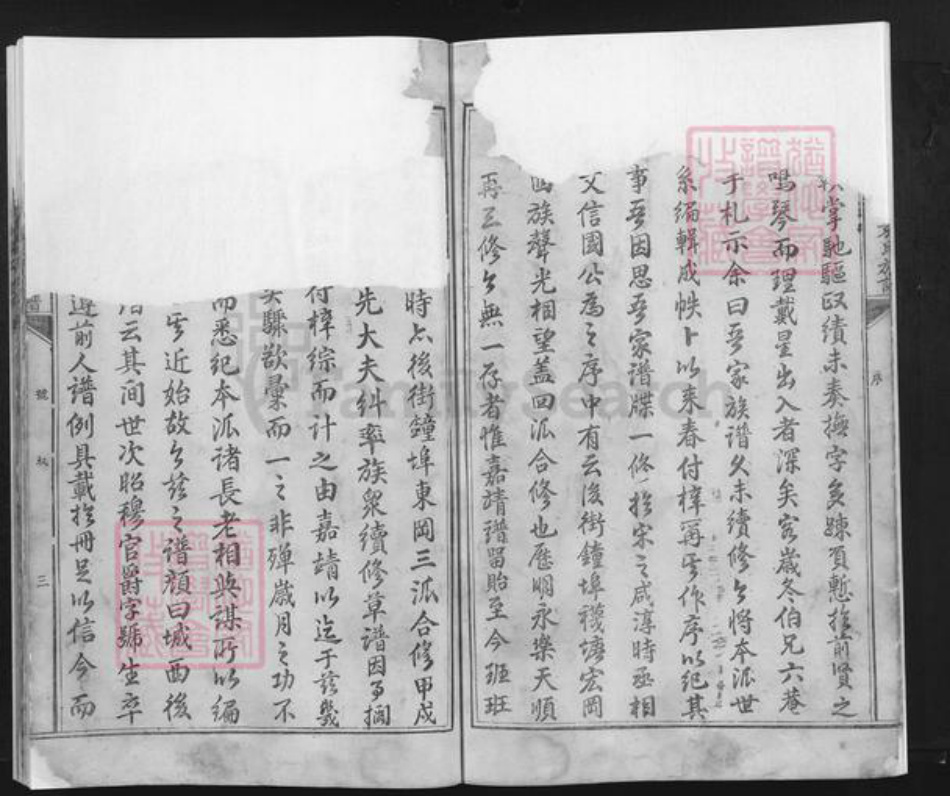 掌馳驅以績未奏撫字多疎頂慙於前賢之
鳴琴而理戴星出入者深矣客歲冬伯兄六菴
于札示余曰吾家族譜久未續修今將本派世
系編輯成帙卜以來春付梓再芋作序以紀其
事吾因思吾家譜牒一修於宋之咸淳時丞相
文信國公為之序中有云後街鐘埠襪塘宏岡
四族聲光相望蓋四派合修也歷明永樂天順
再三修今無一存者惟嘉靖譜留貽至今班班
時亦後街鐘埠東岡三派合修甲戌
先大夫糾率族衆續修草譜因事擱
付梓綜而計之由嘉靖以迄于茲幾
矣驟欲彙而一之非殫歲月之功不
而悉紀本派諸長老相與謀所以編
近始故今茲之譜顏曰城西後
云其間世次昭穆官爵字號生卒
遵前人譜例具載於冊足以信今而
序
譜
號
三
FamilySearch